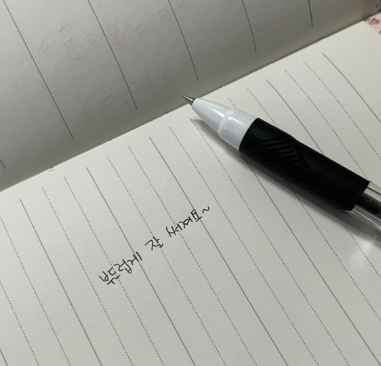 부드럽게 잘 써져요~